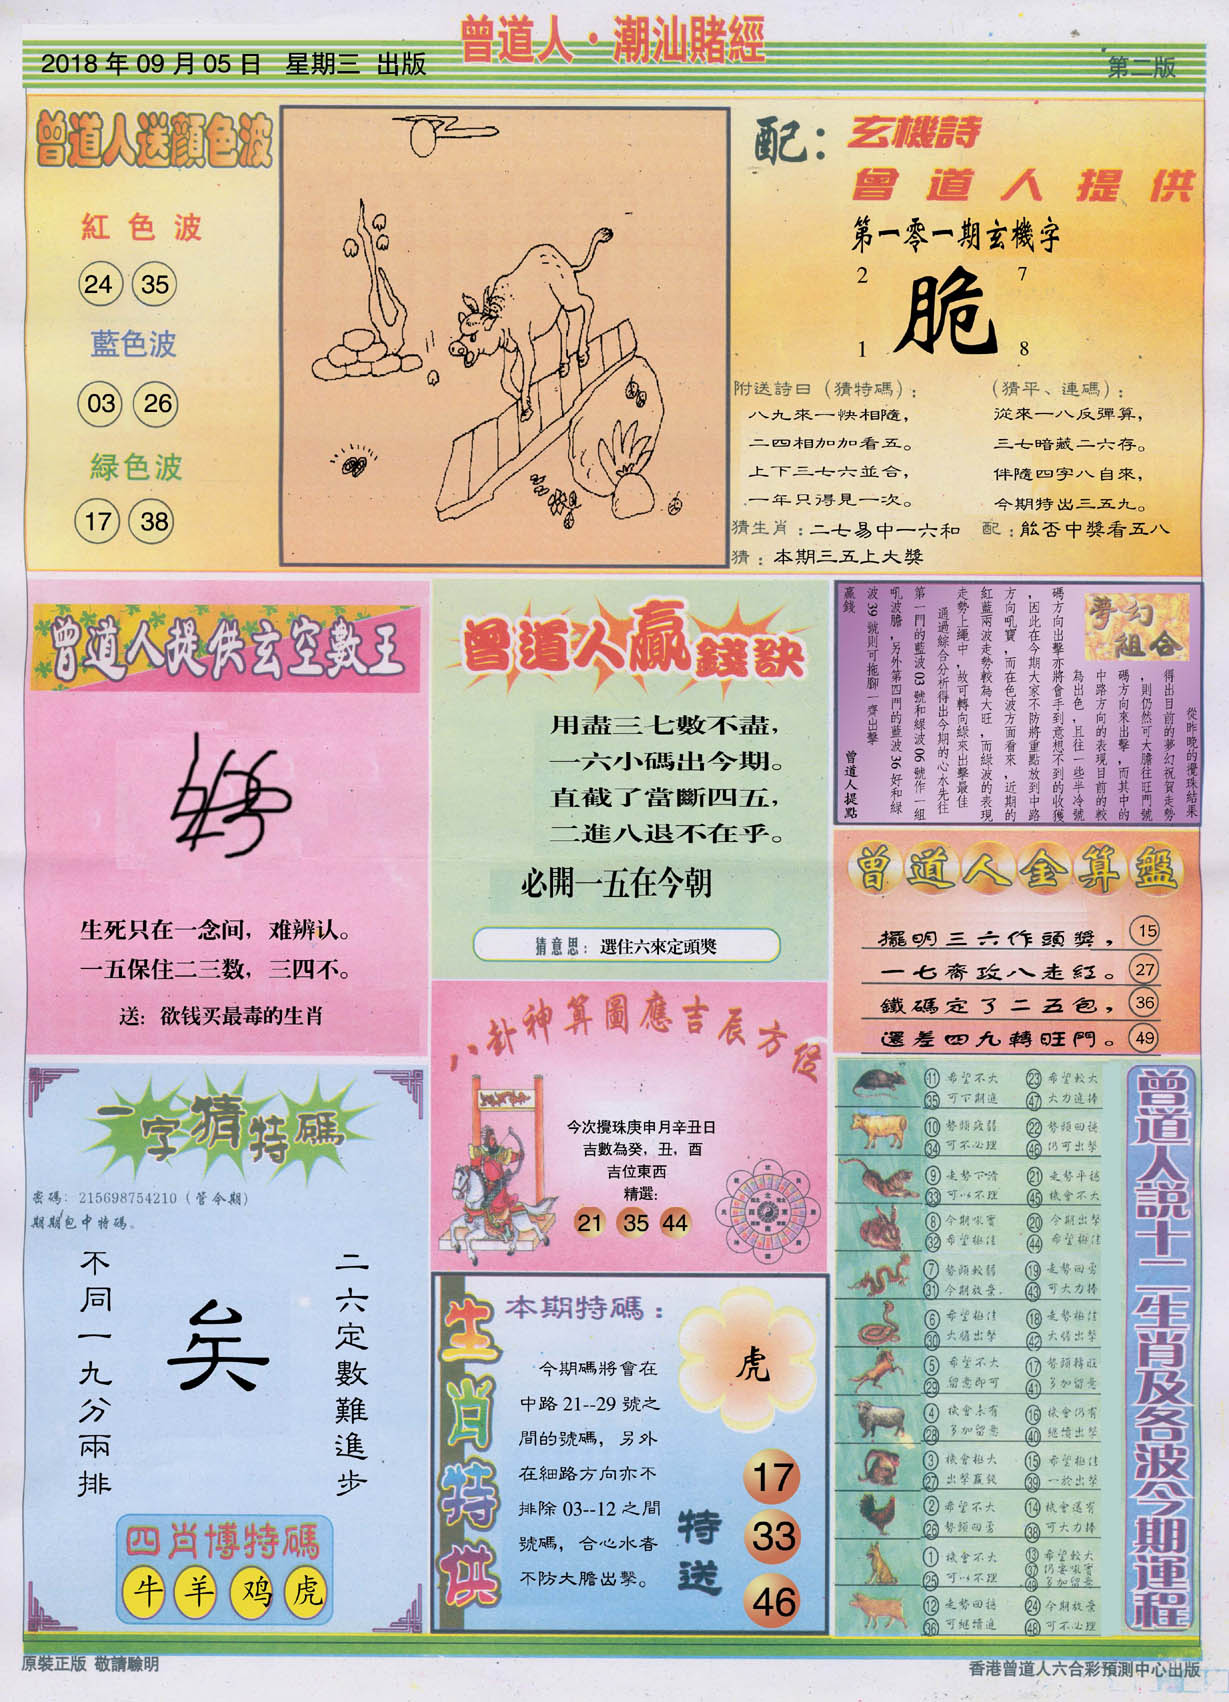 曾道人·潮汕賭經
2018 年 09 月 05 日 星期三 出版
第二版
曾道人送顏色波
紅色波
24 35
藍色波
03 26
緑色波
17 38
配:
玄機詩
曾道人提供
第一零一期玄機字
2 7
脆
1 8
附送詩曰（猜特碼）:
八九來一快相隨,
二四相加加看五。
上下三七六並合,
一年只得見一次。
（猜平、連碼）:
從來一八反彈算,
三七暗藏二六存。
伴隨四字八自來,
今期特出三五九。
猜生肖: 二七易中一六和
配: 能否中獎看五八
猜: 本期三五上大獎
曾道人提供玄空數王
生死只在一念间, 难辨认。
一五保住二三数, 三四不。
送: 欲钱买最毒的生肖
曾道人贏錢訣
用盡三七數不盡,
一六小碼出今期。
直截了當斷四五,
二進八退不在乎。
必開一五在今朝
猜意思: 選住六來定頭獎
夢幻
組合
從昨晚的攪珠結果
得出目前的夢幻祝賀走勢
,則仍然可大膽往旺門號
碼方向來出擊,而其中的
中路方向的表現目前的較
為出色,且往一些半冷號
碼方向出擊亦將會手到意想不到的收獲
,因此在今期大家不防將重點放到中路
方向吼寶,而在色波方面看來,近期的
紅藍兩波走勢較為大旺,而綠波的表現
走勢上繩中,故可轉向綠來出擊最佳
通過綜合分析得出今期的心水先往
第一門的藍波 03 號和綠波 06 號作一組
吼波膽,另外第四門的藍波 36 好和綠
波 39 號則可拖腳一齊出擊
贏錢
曾道人提點
曾道人金算盤
擺明三六作頭獎, 15
一七齊攻八走紅。 27
鐵碼定了二五包, 36
還差四九轉旺門。 49
一字猜特碼
密碼: 215698754210 (管令期)
期期包中特碼。
二六定數難進步
矣
不同一九分兩排
四肖博特碼
牛 羊 鸡 虎
八卦神算圖應吉辰方位
今次攪珠庚申月辛丑日
吉數為癸, 丑, 酉
吉位東西
精選:
21 35 44
生肖特供
本期特碼:
虎
今期碼將會在
中路 21--29 號之
間的號碼, 另外
在細路方向亦不
排除 03--12 之間
號碼, 合心水者
不防大膽出擊。
特送
17
33
46
曾道人説十二生肖及各波今期運程
11 希望不大 23 希望較大
35 可下期進 47 大力進捧
10 勢頭疲弱 22 勢頭回穩
34 可不必理 46 仍可出擊
9 走勢下滑 21 走勢平穩
33 可以不理 45 機會不大
8 今期吼寶 20 今期出擊
32 希望極佳 44 希望極佳
7 勢頭較弱 19 走勢回勇
31 今期放棄 43 可大力捧
6 希望極佳 18 走勢極佳
30 大膽出擊 42 大膽出擊
5 希望不大 17 勢頭轉旺
29 留意即可 41 多加留意
4 機會未有 16 機會仍有
28 多加留意 40 繼續出擊
3 機會極大 15 希望極佳
27 出擊贏錢 39 一於出擊
2 希望不大 14 機會還有
26 勢頭回勇 38 可大力捧
1 機會不大 13 希望較大
25 可以不理 37 仍要吼實
49 多加留意
12 走勢回穩 24 今期放棄
36 可繼續進 48 可不必理
原裝正版 敬請驗明
香港曾道人六合彩預測中心出版